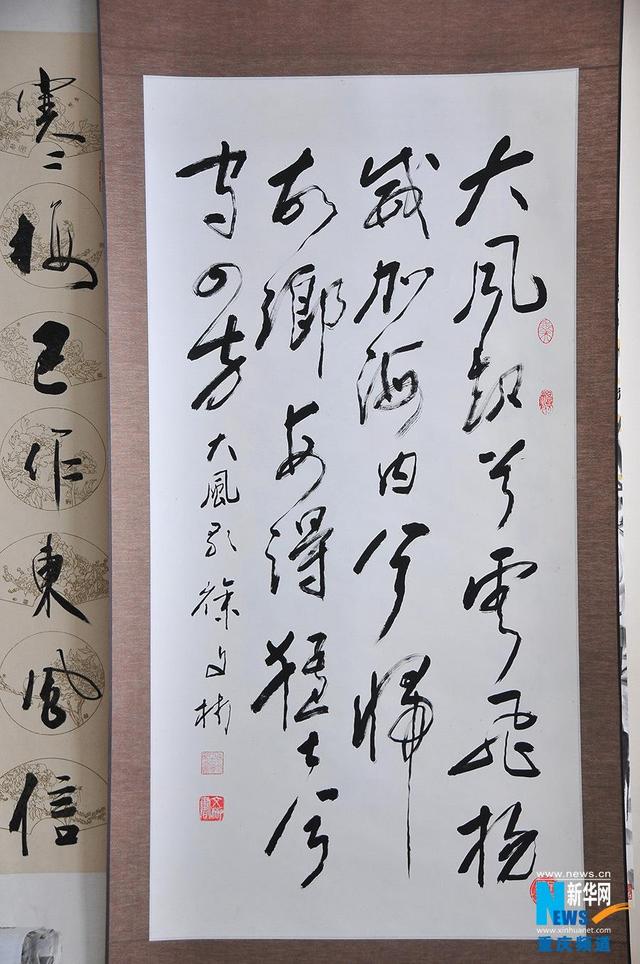 大風起兮雲飛揚
威加海内兮歸
故鄉安得猛士兮
守四方大風歌徐文彬
寒梅已作東風信
www.news.cn
NEWS 新华网
www.xinhuanet.com
重庆频道